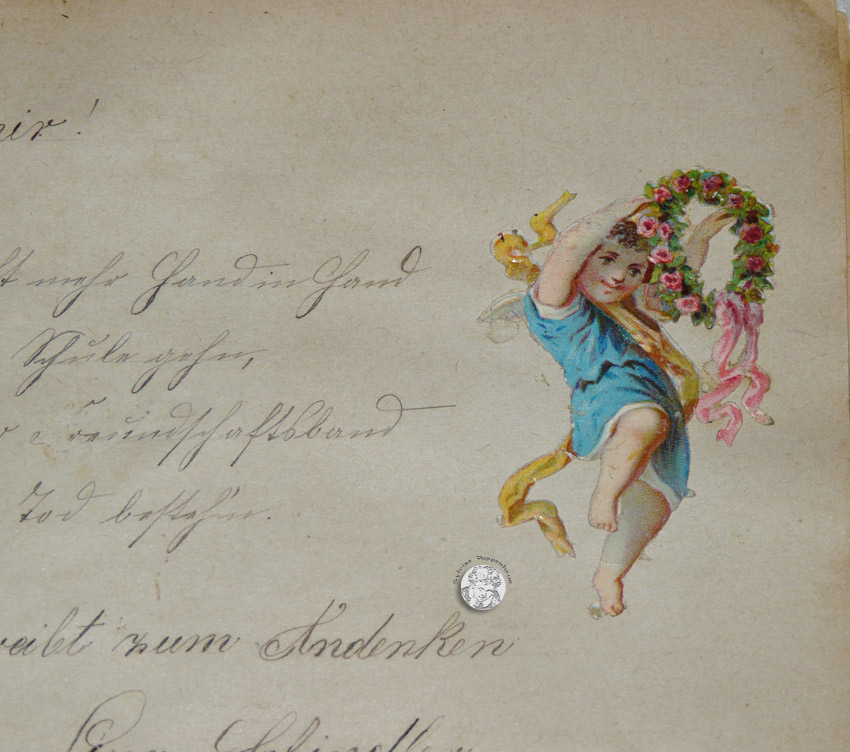 mir!
mehr Hand in Hand
Schule gehn,
Freundschaftsband
Tod besteh'n.
zum Andenken
Schindler
Sylvias Puppenhaus